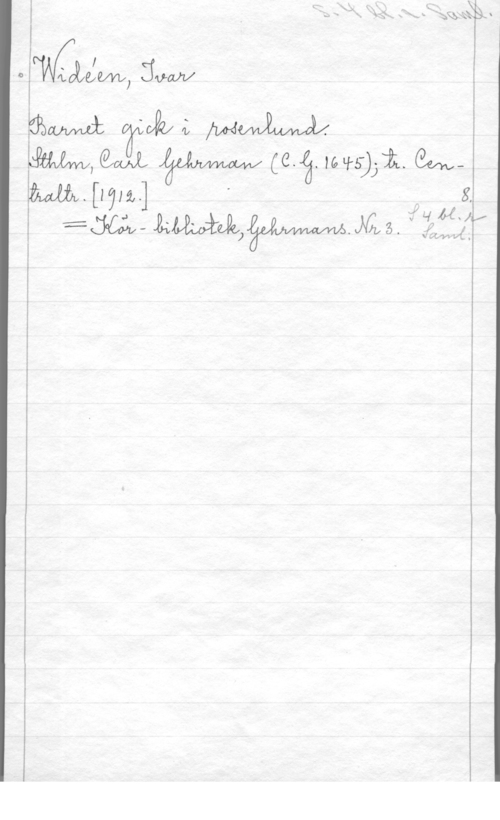 Widéen, Ivar
Barnet gick i rosenlund.
Sthlm, Carl Gehrman (C. G. 1645); tr. Cen-
traltr. [1912.] 8.
= Kör-bibliotek, Gehrmans. Nr 3. S 4 bl. r
Saml.